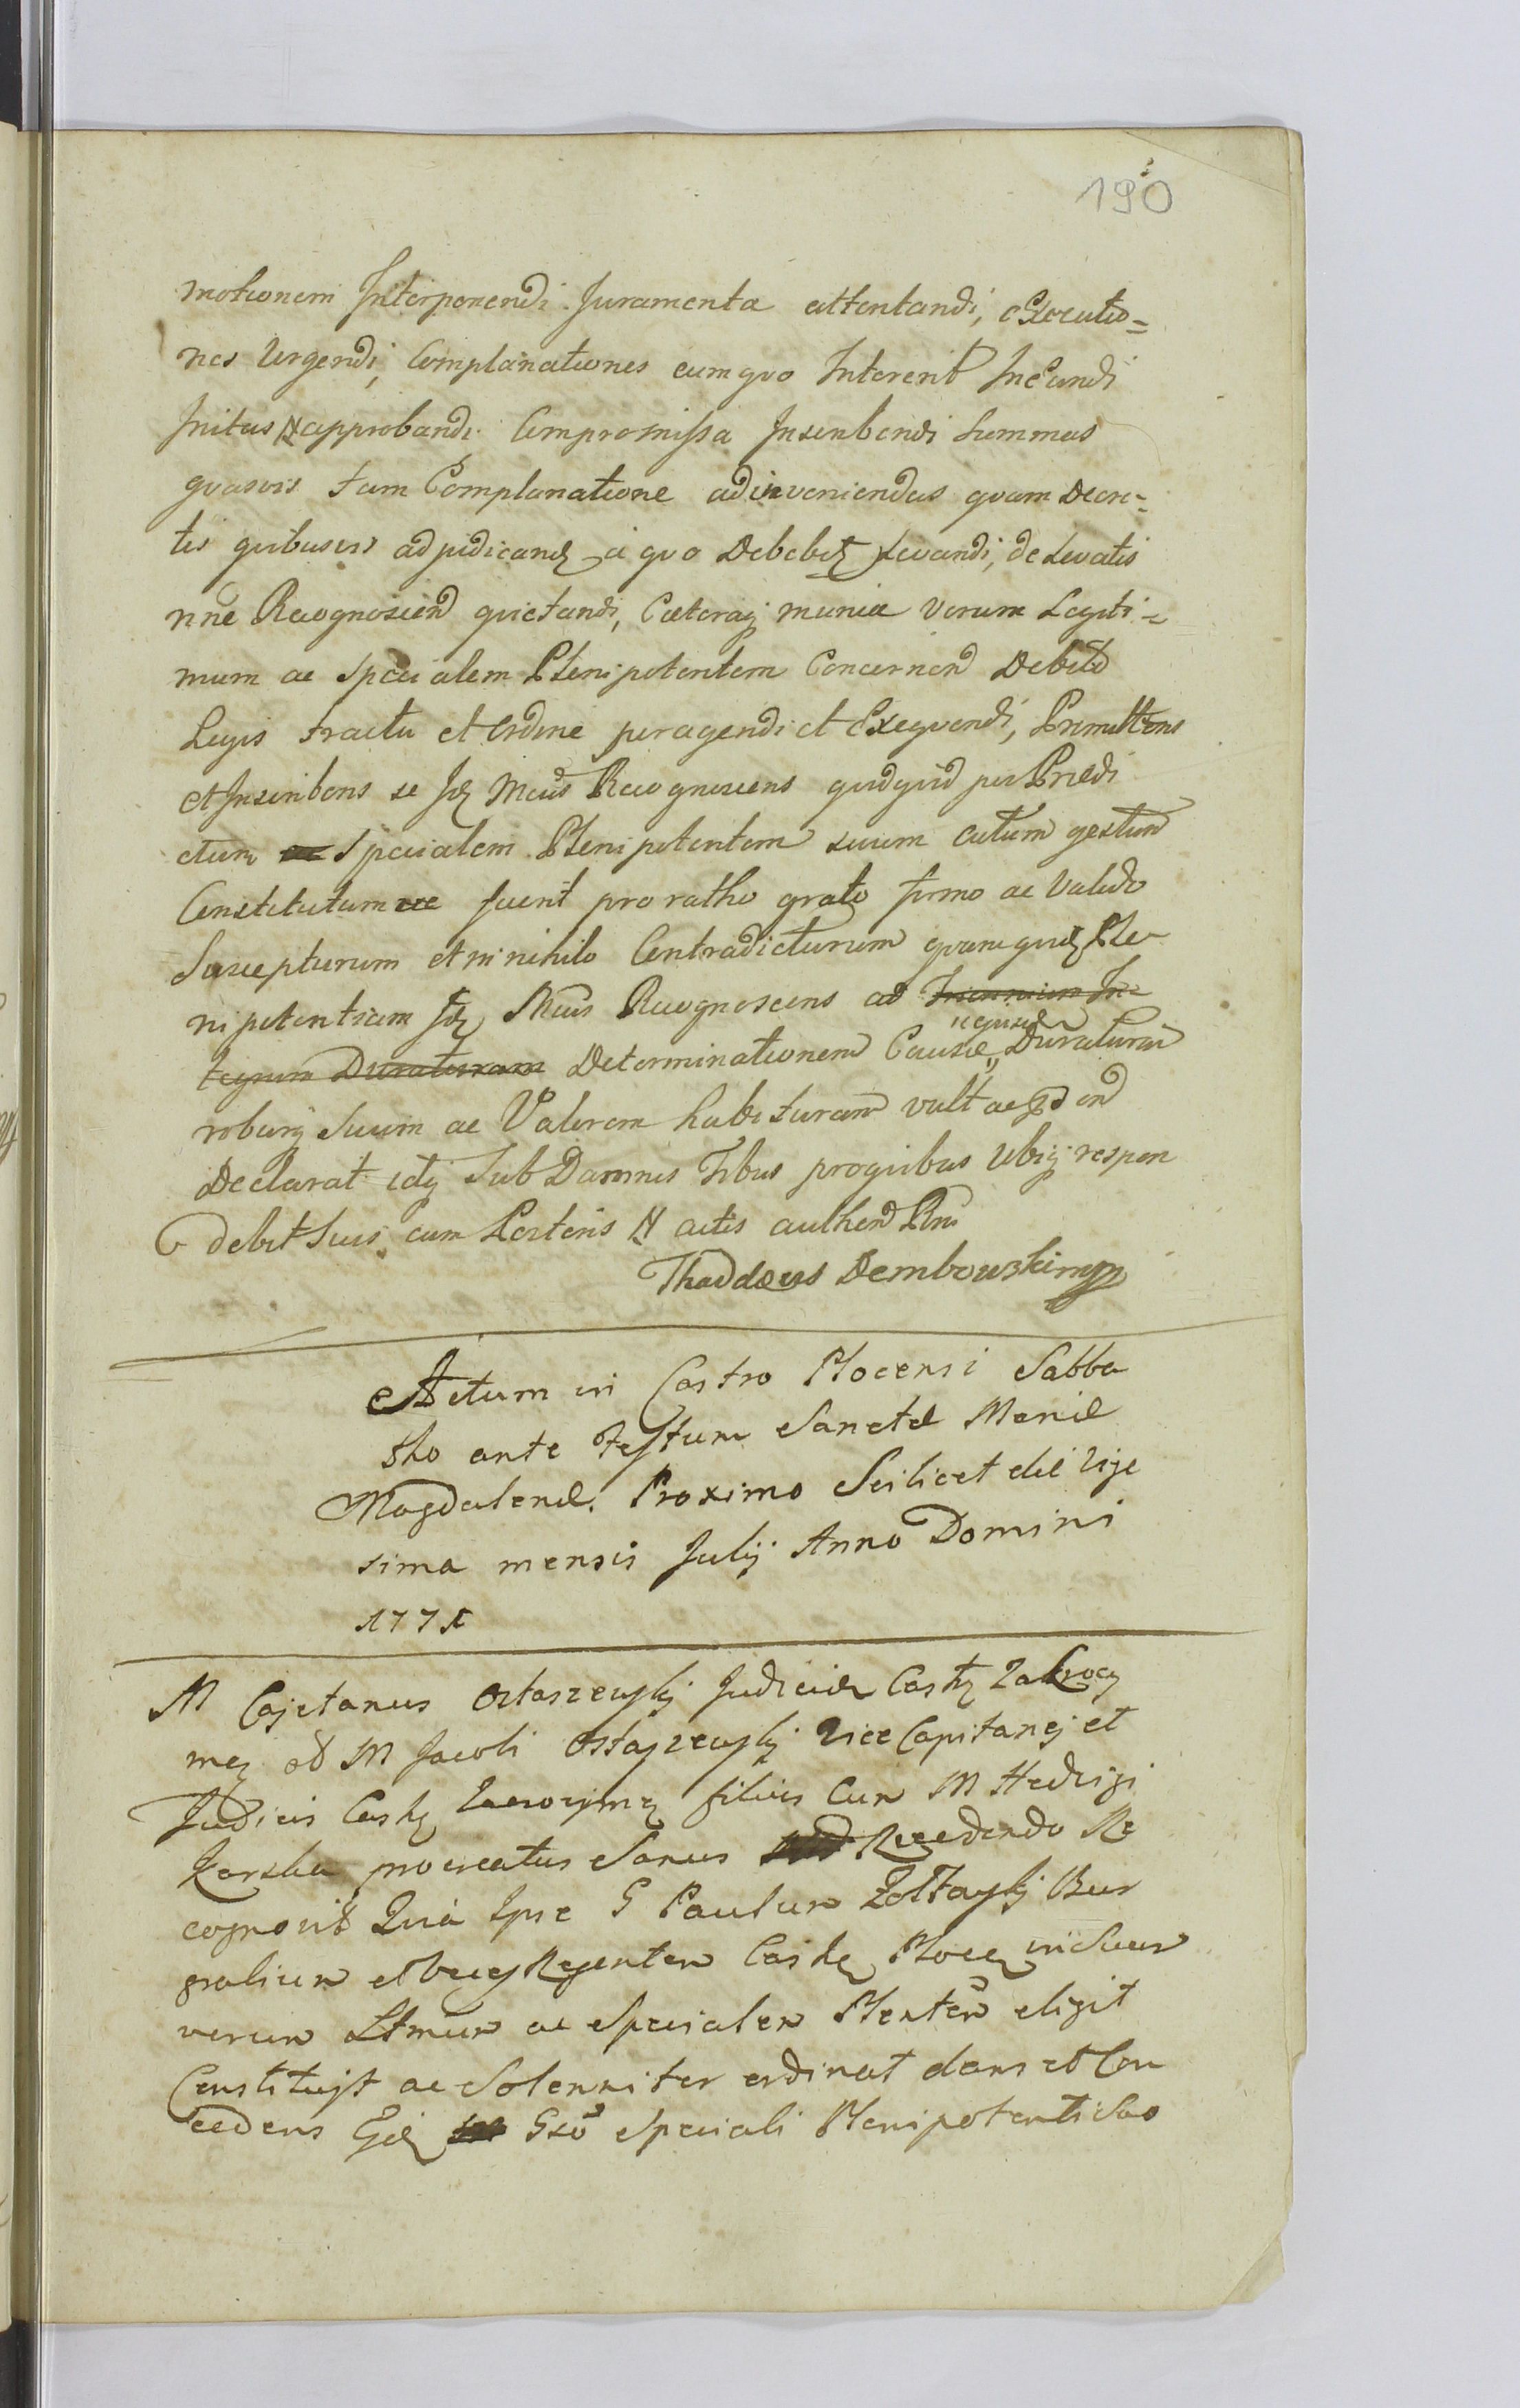 190
motionem Interponendi Juramenta attentandi, Executio=
nes Urgendi, Complanationes cum quo Intererit Ineundi
Initas approbandi Compromissa Inscribendi Summas
quasvis tam Complanatione adinveniendas quam Decre=
tis quibusvis adjudicand a quo Debebit Levandi, de Levatis
nne Recognoscend quietandi, Caeteraq munia Verum Legiti=
mum ac Specialem Plenipotentem Concernen Debito
Legis tractu et Ordine peragendi et Exequendi, Promittens
et Inscribens se Id Mcus Recognoscens quidquid per Praedi
ctum Specialem Plenipotentem suum actum gestum
Constitutumve fuerit pro ratho grato firmo ac Valido
Suscepturum et in nihilo Contradicturum quamquid Ple-
nipotentiam Id Mcus Recognoscens ad Triennium In=
tegrum Duraturam Determinationem Causae, ejusd Duraturam
roburq Suum ac Valorem habituram vult ac
Declarat idq Sub Damnis Tribus proquibus Ubiq respon
debit Suis cum Posteris actis authen
Thaddaeus Dembowski mpp
Actum in Castro Plocensi Sabba
tho ante Festum Sanctae Mariae
Magdalenae Proximo Scilicet die Vige
sima mensis Julij Anno Domini
177
M Cajetanus Ostaszewskj Judicida Castr Zakrocz
men M Jacobi Ostaszewskj Vice Capitanej et
Judicis Castr Zacroczymen filius Cum M Hedvigi
Karska procreatus Sanus Recedendo Re
cognovit Quia Ipse G Paulum Zoltowskj Bur
grabium et Vice Regentem Castr Plocen in Suum
verum Ltmum ac Specialem Plentem eligit
Constituit ac Solenniter ordinat dans et Con
cedens Eid Gso Speciali Plenipotenti Suo